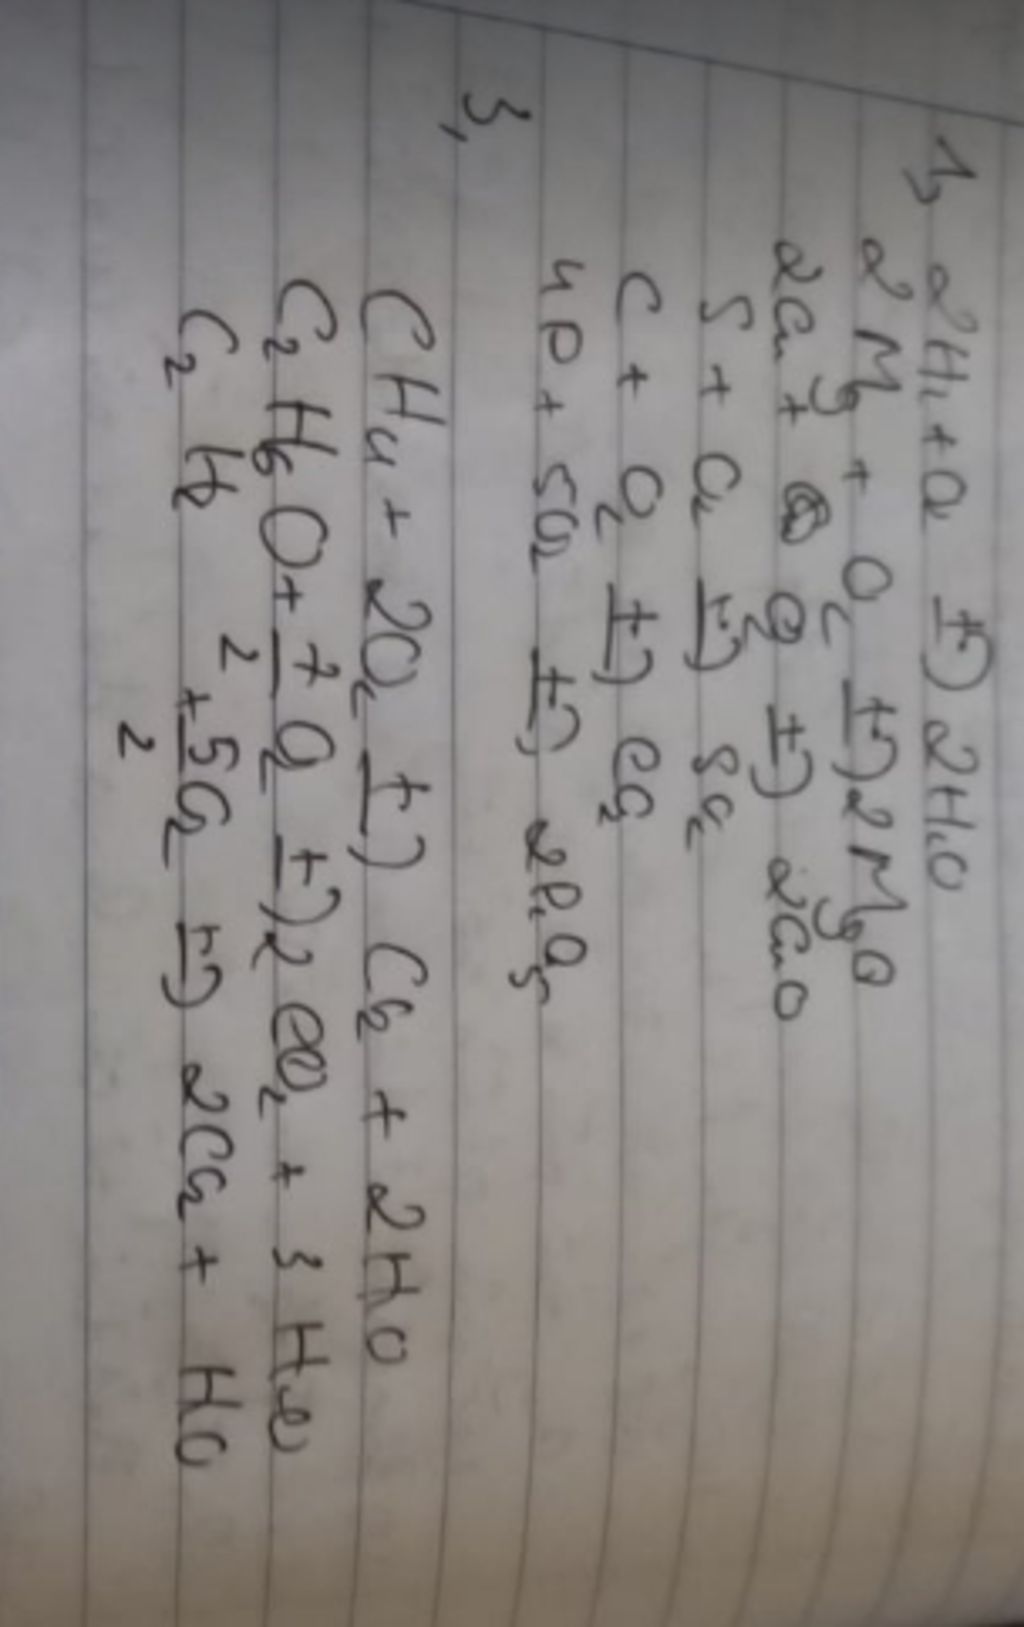 1, 2H₂ + O₂ t°→ 2H₂O
2Mg + O₂ t°→ 2MgO
2Cu + O₂ t°→ 2CuO
S + O₂ t°→ SO₂
C + O₂ t°→ CO₂
4P + 5O₂ t°→ 2P₂O₅
3,
CH₄ + 2O₂ t°→ CO₂ + 2H₂O
C₂H₆O + 7/2 O₂ t°→ 2CO₂ + 3H₂O
C₂H₂ + 5/2 O₂ t°→ 2CO₂ + H₂O